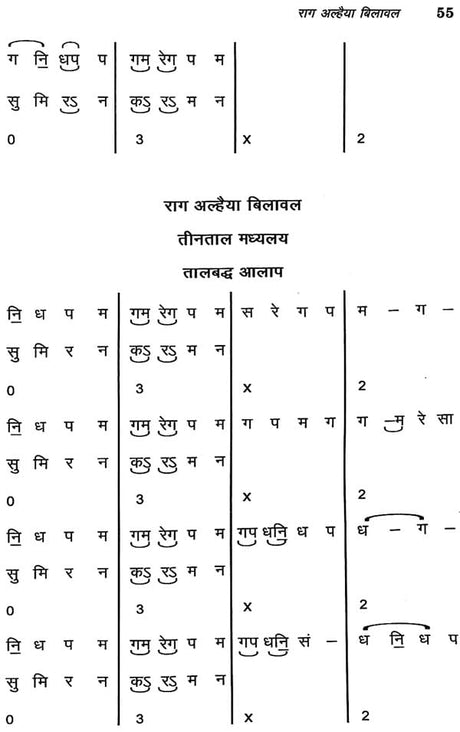 राग अल्हैया बिलावल 55
ग नि॒ धप प | गम रेग प म | |
सु मि रऽ न | कऽ रऽ म न | |
0 3 x 2
राग अल्हैया बिलावल
तीनताल मध्यलय
तालबद्ध आलाप
नि॒ ध प म | गम रेग प म | स रे ग प | म – ग –
सु मि र न | कऽ रऽ म न | |
0 3 x 2
नि॒ ध प म | गम रेग प म | ग प म ग | ग –म रे सा
सु मि र न | कऽ रऽ म न | |
0 3 x 2
नि॒ ध प म | गम रेग प म | गप धनि ध प | ध – ग –
सु मि र न | कऽ रऽ म न | |
0 3 x 2
नि॒ ध प म | गम रेग प म | गप धनि सं – | ध नि॒ ध प
सु मि र न | कऽ रऽ म न | |
0 3 x 2